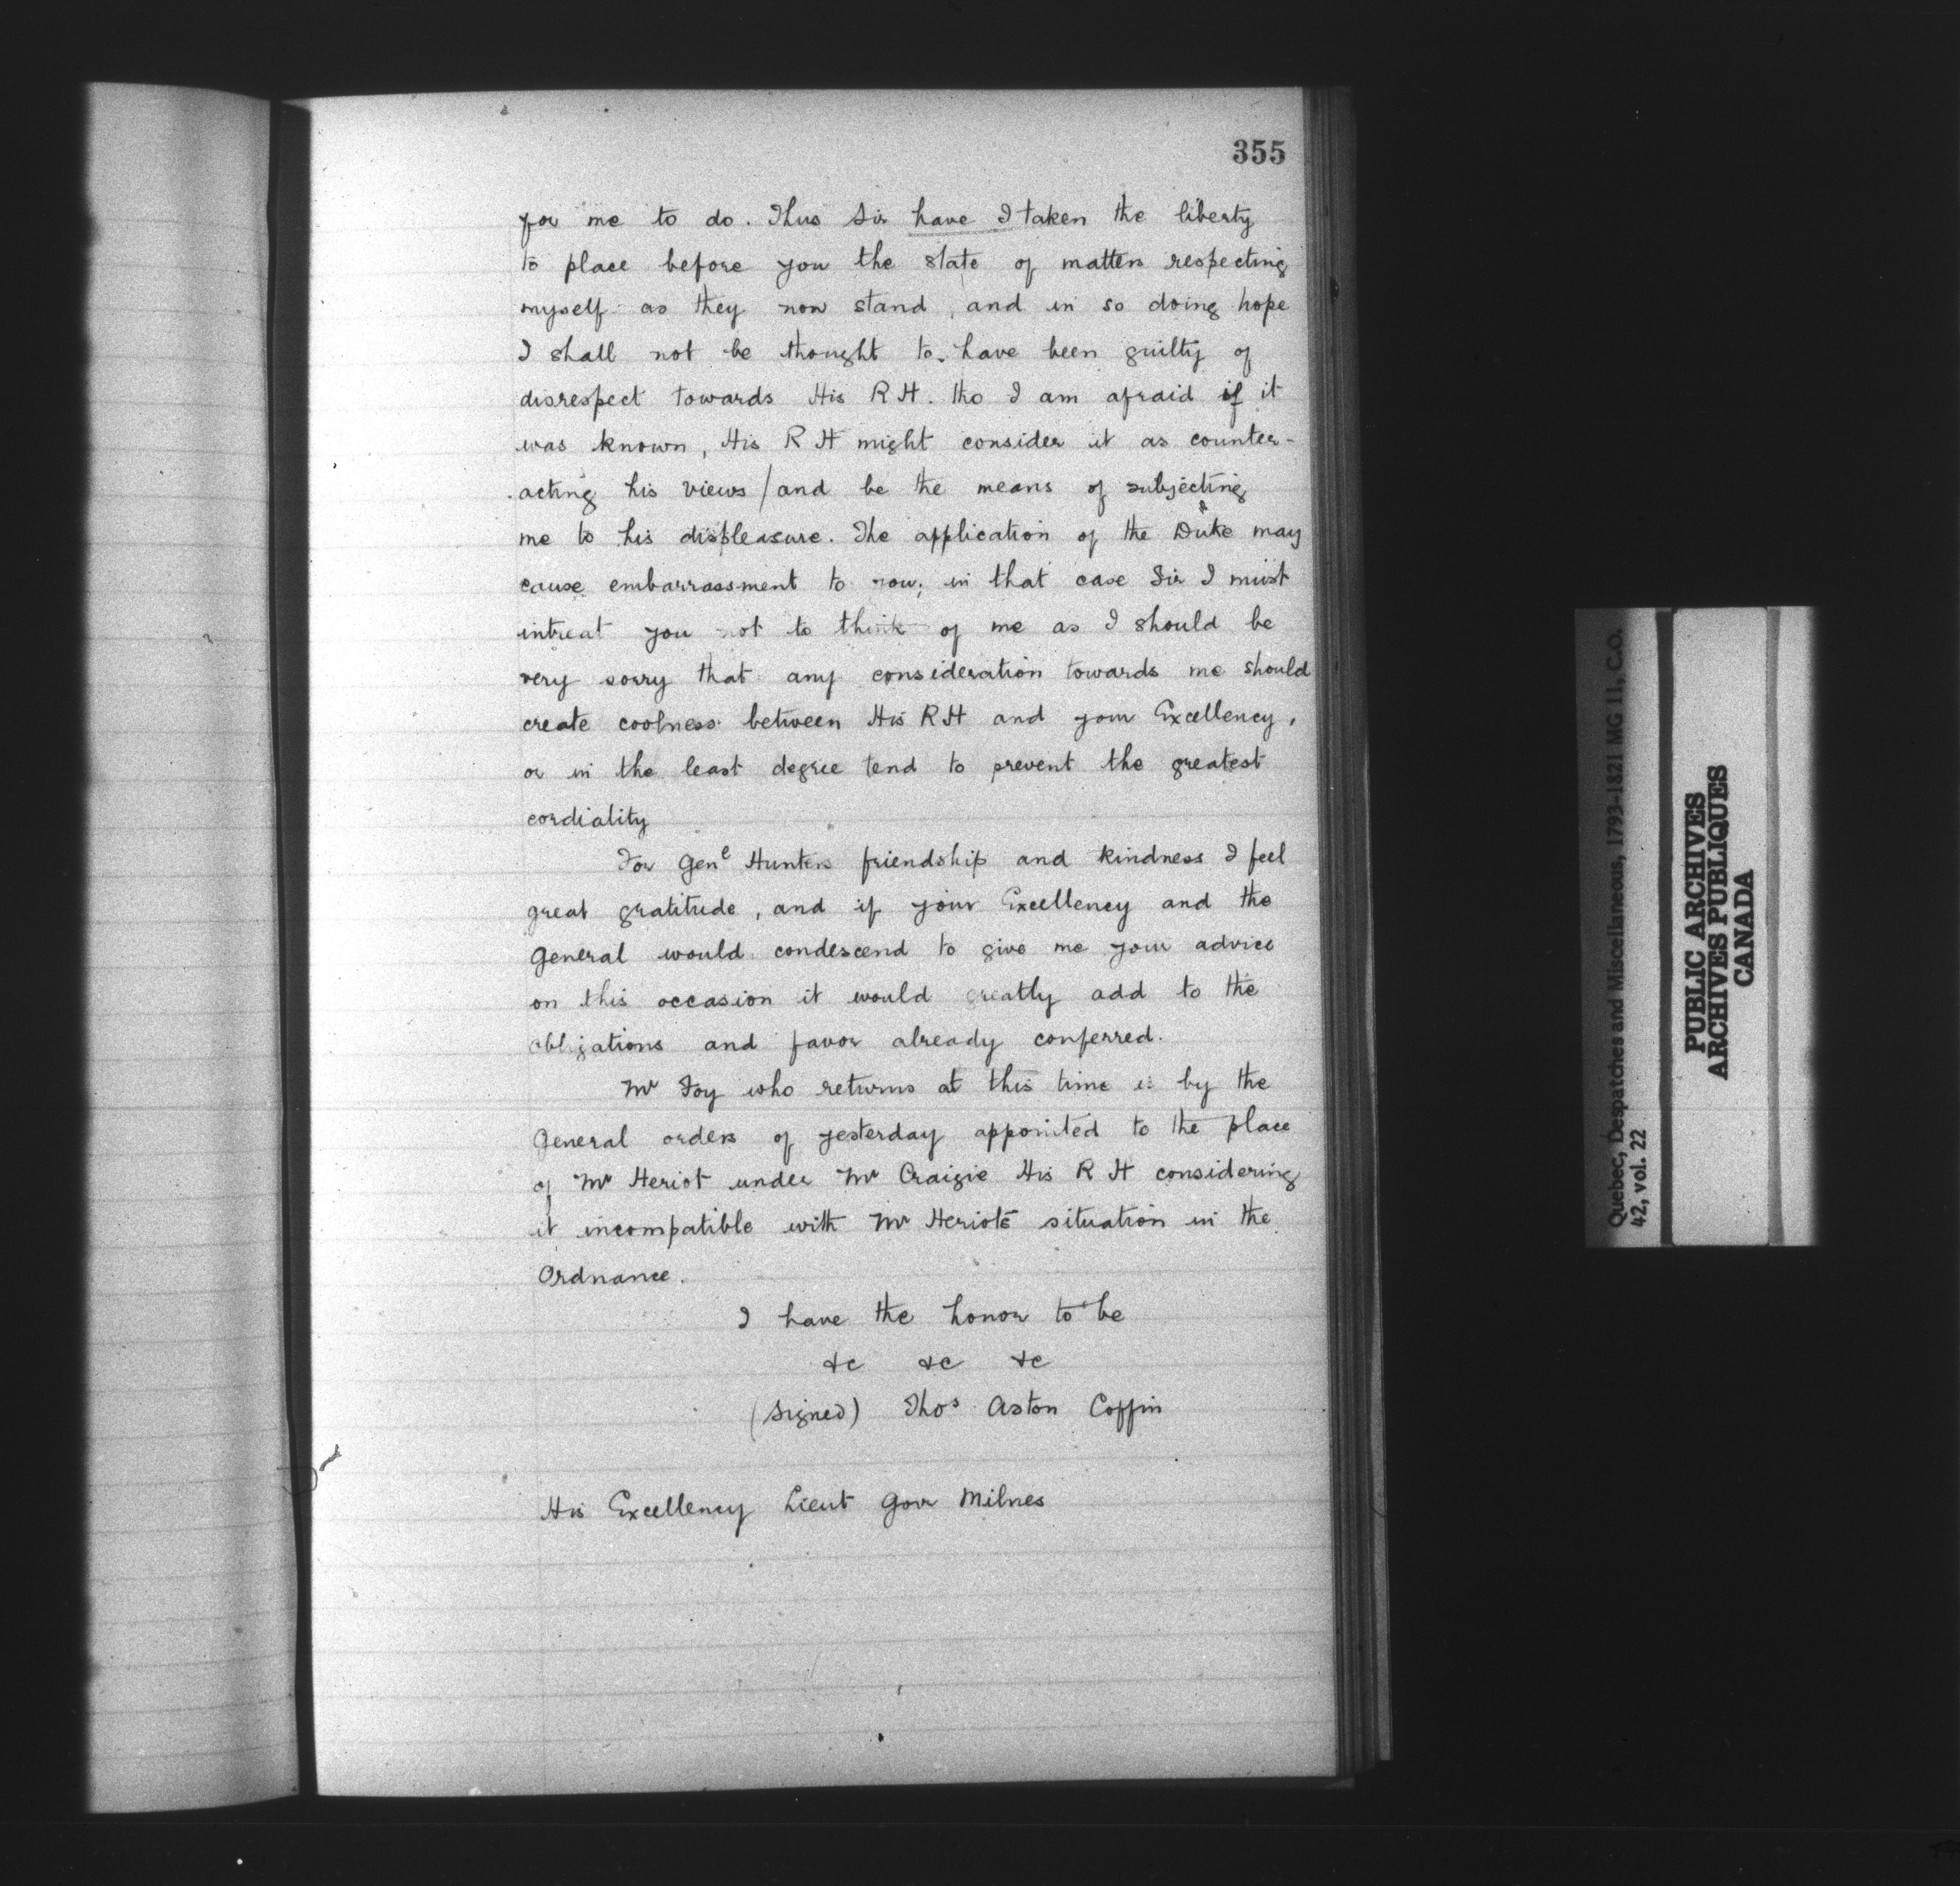 355
for me to do. Thus Sir have I taken the liberty
to place before you the state of matters respecting
myself as they now stand, and in so doing hope
I shall not be thought to have been guilty of
disrespect towards His R H. tho I am afraid if it
was known, His R H might consider it as counter-
acting his views / and be the means of subjecting
me to his displeasure. The application of the Duke may
cause embarrassment to you; in that case Sir I must
intreat you not to think of me as I should be
very sorry that any consideration towards me should
create coolness between His R H and your Excellency,
or in the least degree tend to prevent the greatest
cordiality
For Genl Hunters friendship and kindness I feel
great gratitude, and if your Excellency and the
General would condescend to give me your advice
on this occasion it would greatly add to the
obligations and favor already conferred.
Mr Foy who returns at this time is by the
General orders of yesterday appointed to the place
of Mr Heriot under Mr Craigie His R H considering
it incompatible with Mr Heriots situation in the
Ordnance.
I have the honor to be
&c &c &c
(Signed) Thos Aston Coffin
His Excellency Lieut Govr Milnes
Quebec, Despatches and Miscellaneous, 1793-1821 MG 11, C.O.
42, vol. 22
PUBLIC ARCHIVES
ARCHIVES PUBLIQUES
CANADA